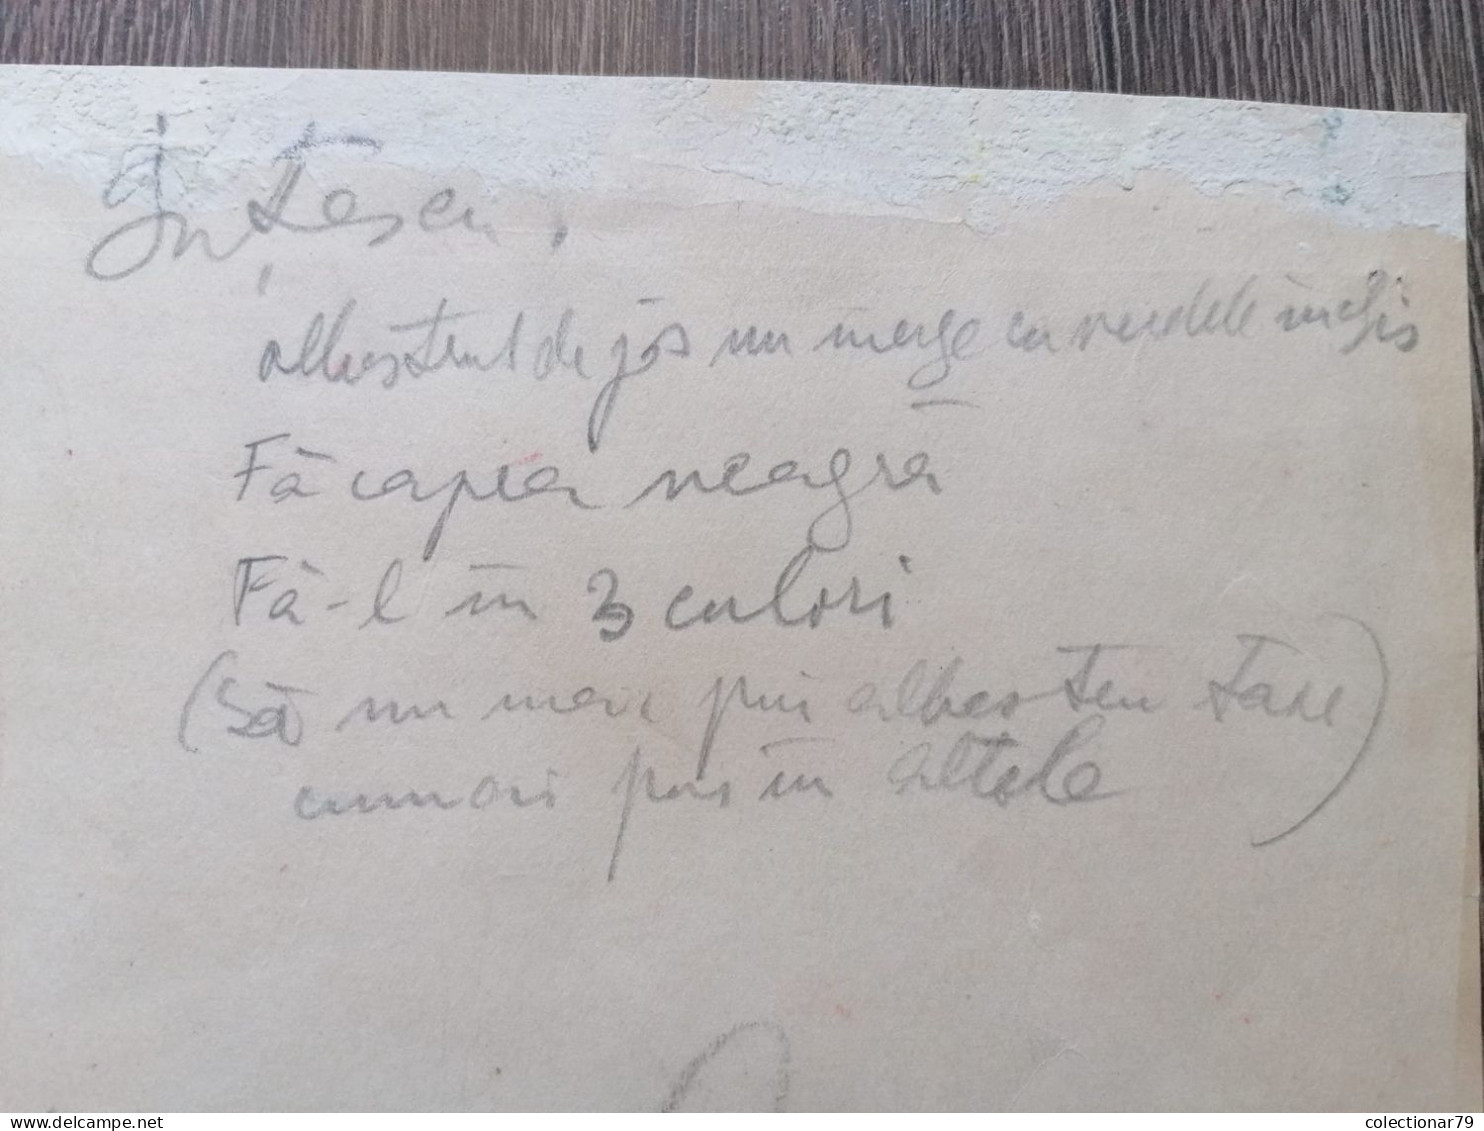 albastrul de jos nu merge cu verdele închis
Fă capra neagră
Fă-l în 3 culori
(Să nu mai pui albastru tare
cum ai pus în altele)
colectionar79